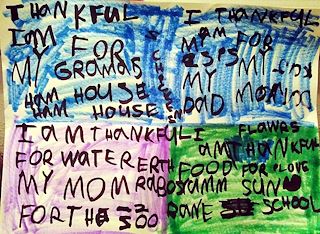 THANKFUL
IAM FOR
MY GRAMAS
HAM HOUSE
HAM HOUSE
I THANKFUL
AM FOR
MY MY
DAD
I AM THANKFUL
FOR WATER ERTH
MY MOM RABOS
FOR THE ZOO
I FLAWRS
AM THANKFUL
FOOD FOR
SUN
RANE SCHOOL